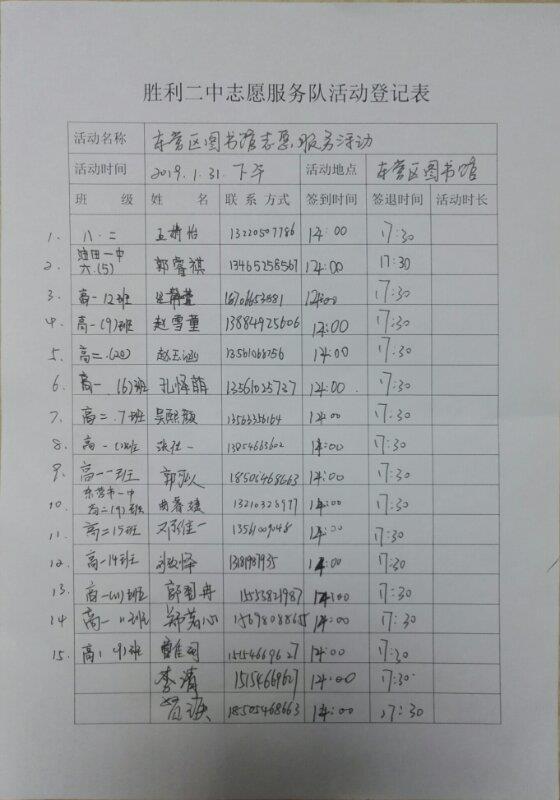 胜利二中志愿服务队活动登记表
活动名称 东营区图书馆志愿服务活动
活动时间 2019.1.31.下午 活动地点 东营区图书馆
班 级 姓 名 联系方式 签到时间 签退时间 活动时长
1. 八.二 13220507786 14:00 17:30
2. 油田一中
六.(5) 郭睿祺 13465258567 14:00 17:30
3. 高一12班 14:00 17:30
4. 高一(9)班 赵雪童 13884925606 14:00 17:30
5. 高二.(20) 赵玉涵 13561068756 14:00 17:30
6. 高一 (6)班 孔怿萌 13561025727 14:00 17:30
7. 高二.7班 吴熙颜 14:00 17:30
8. 高一 班 张仕一 13854663602 14:00 17:30
9. 高一一班 郭弘人 18505468663 14:00 17:30
10. 东营市一中
高二(9)班 13210328977 14:00 17:30
11. 高二15班 邓佳一 13561009048 14:00 17:30
12. 高一14班 14:00 17:30
13. 高一 班 15553821987 14:00 17:30
14 高一 班 郑茗心 14:00 17:30
15. 高 班 15154669627 14:00 17:30
李清 15154669627 14:00 17:30
18505468663 14:00 17:30